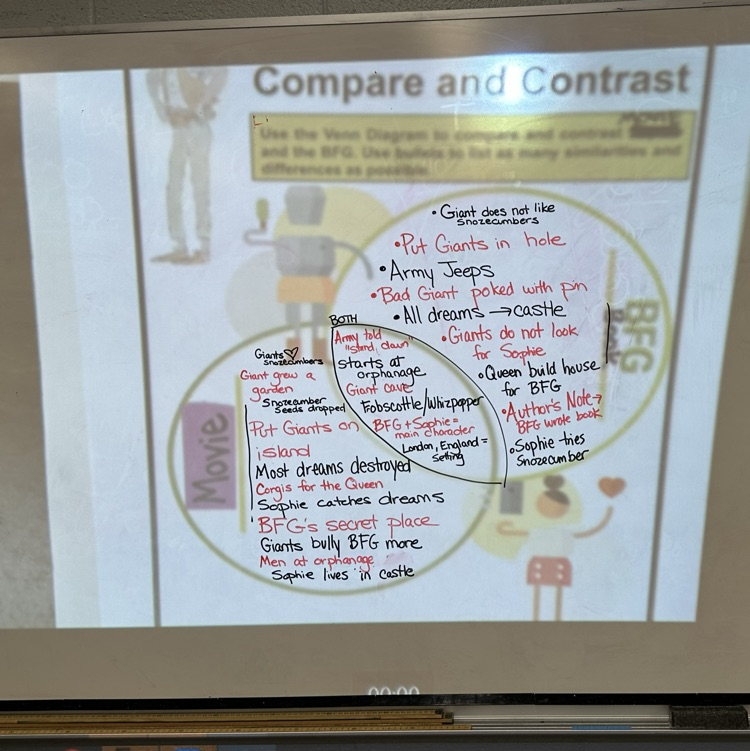 Compare and Contrast
Use the Venn Diagram to compare and contrast
and the BFG. Use bullets to list as many similarities and
differences as possible.
• Giant does not like
snozecumbers
• Put Giants in hole
• Army Jeeps
• Bad Giant poked with pin
• All dreams → castle
• Giants do not look
for Sophie
• Queen build house
for BFG
• Author's Note →
BFG wrote book
• Sophie tries
Snozecumber
BFG
BOTH
Army told
"stand down"
starts at
orphanage
Giant cave
Fobscottle/Whizpopper
BFG + Sophie =
main character
London, England =
Setting
Movie
Giants ♡
snozecumbers
Giant grew a
garden
Snozecumber
Seeds dropped
Put Giants on
island
Most dreams destroyed
Corgis for the Queen
Sophie catches dreams
BFG's secret place
Giants bully BFG more
Men at orphanage
Sophie lives in castle
00:00